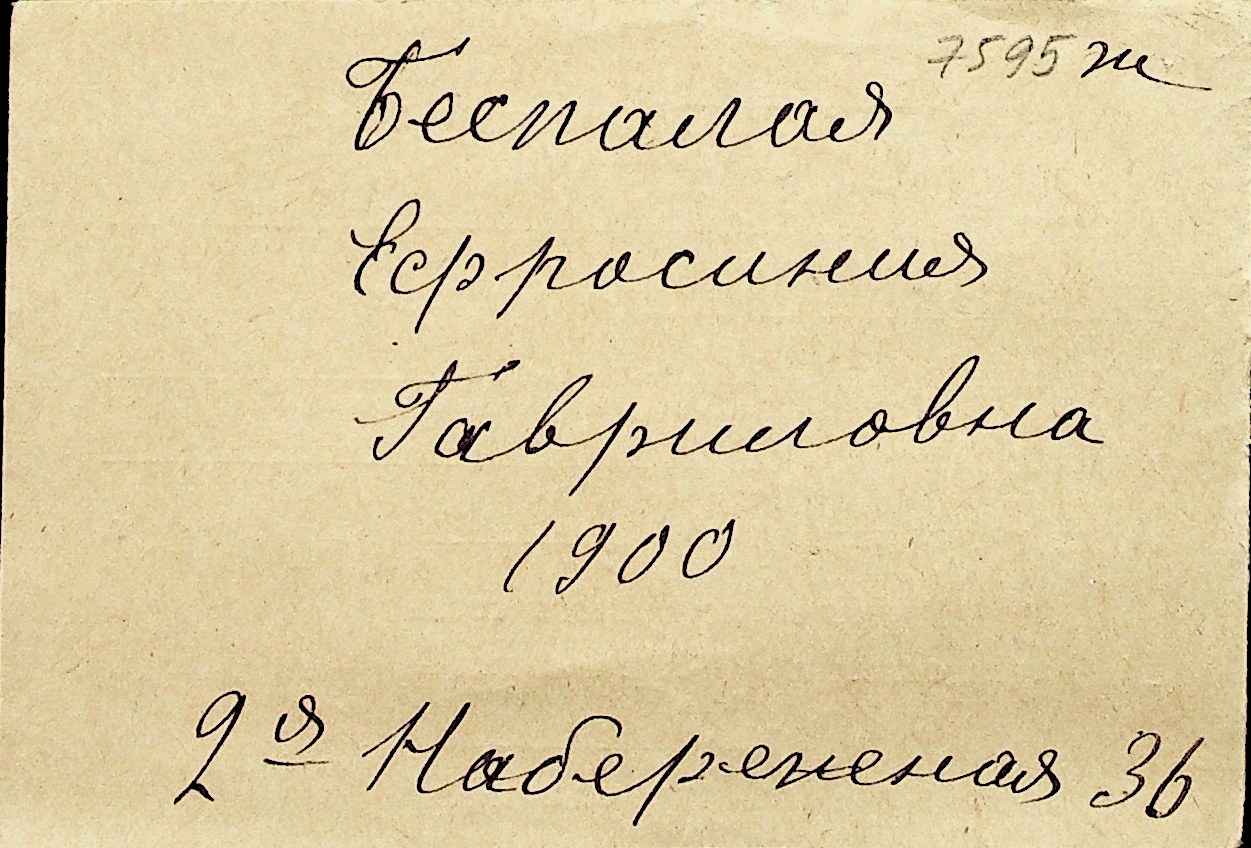 7595 ж
Беспалая
Ефросиния
Гавриловна
1900
2я Набереженая 36